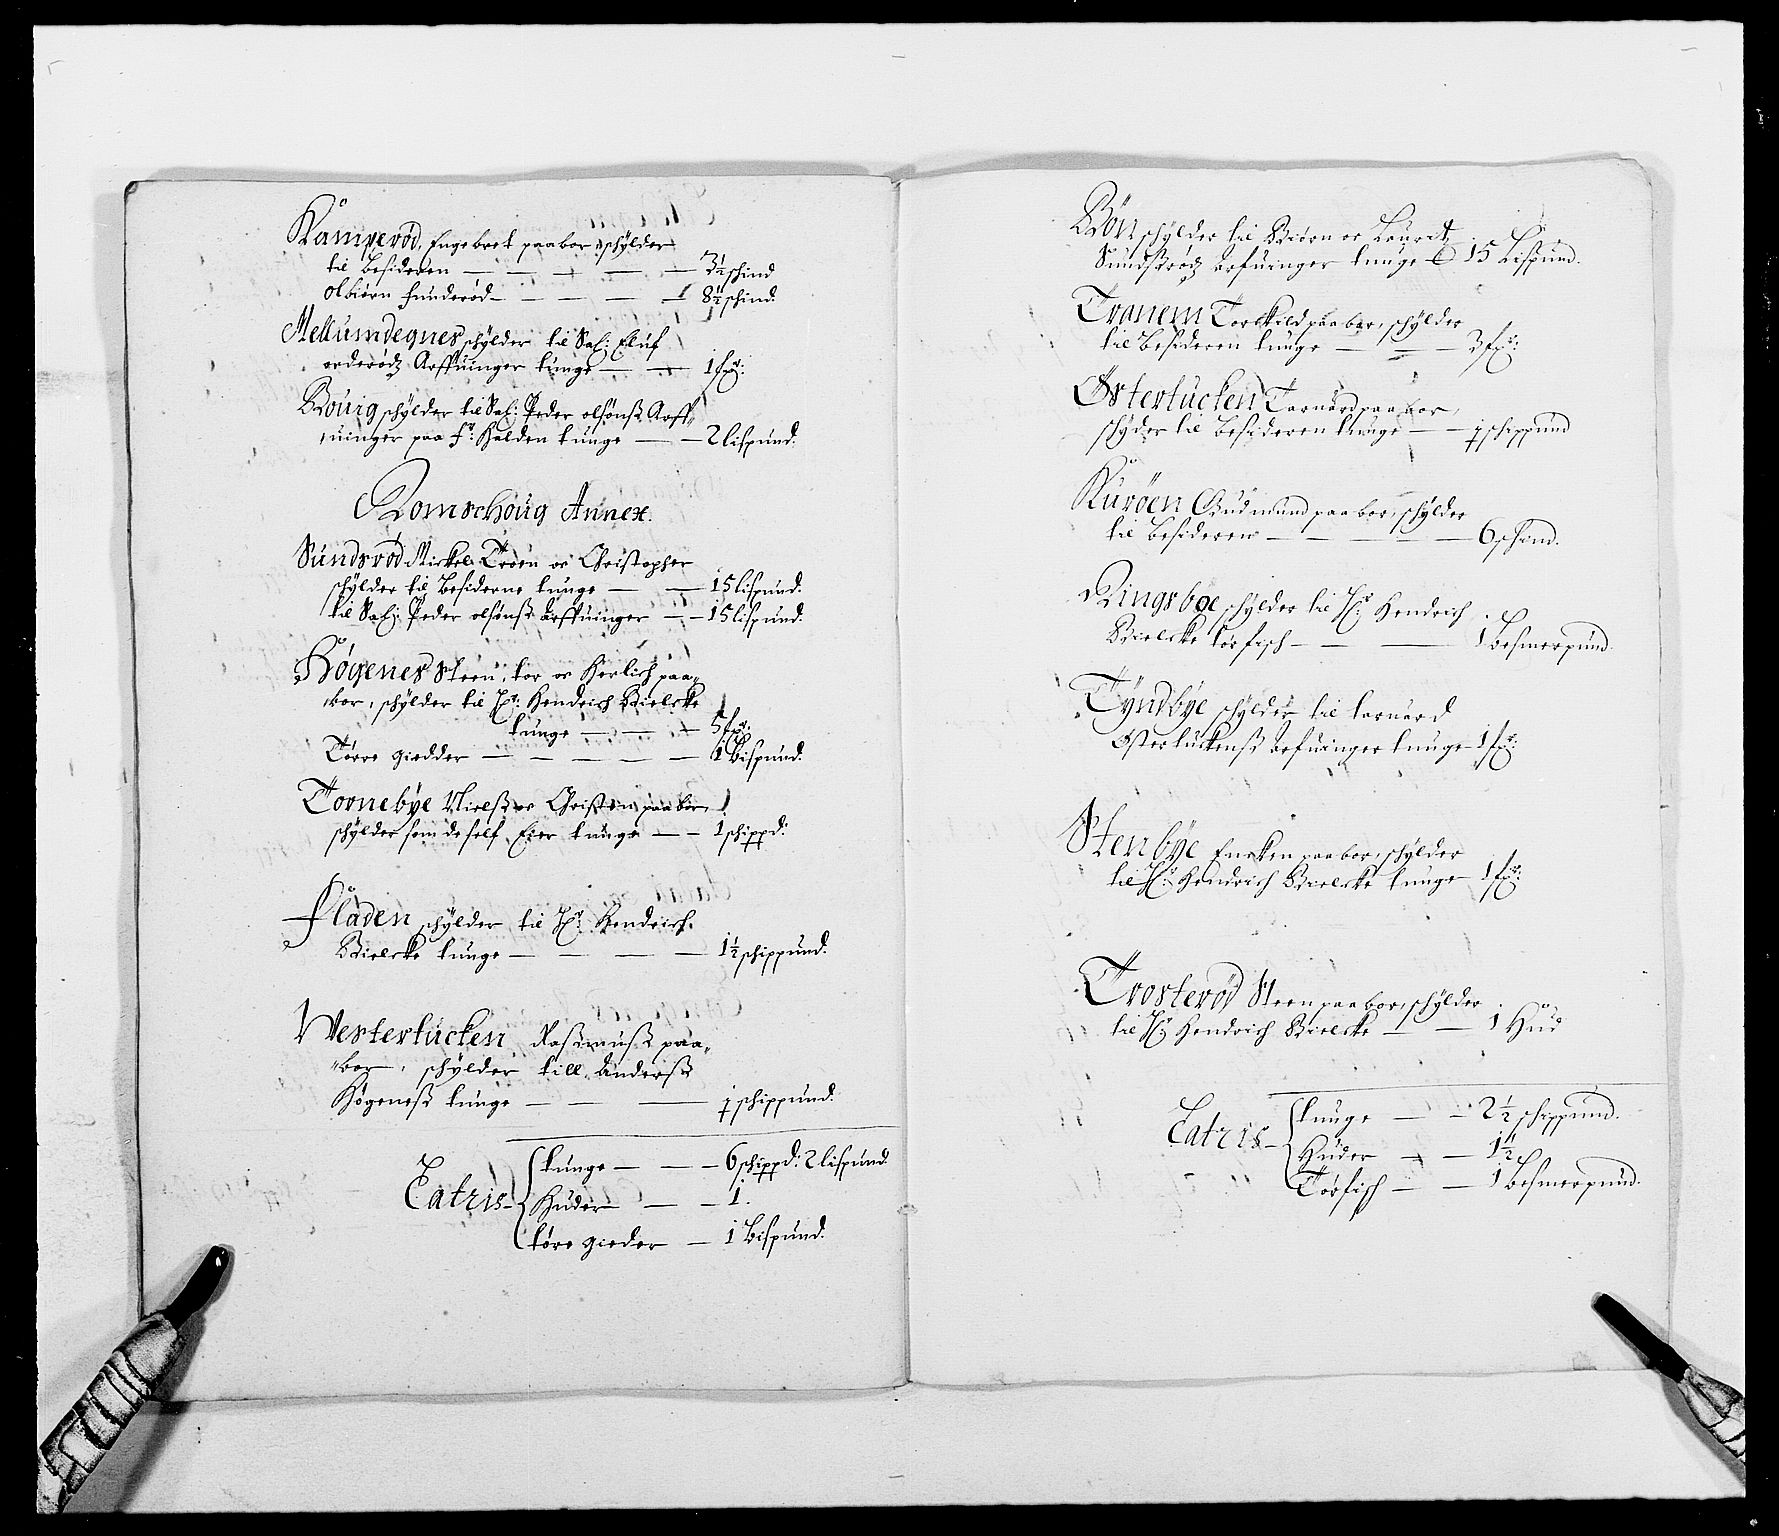 Kamperød, Engebret paabor, schylder
til Besideren — — — — — 3½ schind
olbiørn hunderød — — — — 8½ schind.
Mellumdegnes schylder til Sal: Eluf
orderødz Arffuinger tunge — — 1 fr:
Bouig schylder til Sal: Peder olsønß Arff„
uinger paa fr: Halden tunge — — 2 lispund.
Romschoug Annex.
Sundsrød Mickel, Troen oc Christopher
schylder til Besiderne tunge — — 15 lispund.
til Sal: Peder olsønß Arffuinger — — 15 lispund.
Høgenes Steen, tor oc Herlich paa„
bor, schylder til Hr: Hendrich Bielcke
tunge — — — 5 fr:
Tørre giedder — — — — — 1 Bispund.
Tornebye Nielß oc Christen paabor
schylder som de self Eier tunge — — 1 schippd:
Fladen schylder til Hr: Hendrich
Bielcke tunge — — — — 1½ schippund.
Westertucken Raßmuß paa„
bor, schylder till Anderß
Høgeneß tunge — — — ½ schippund.
Latris — tunge — — — 6 schippd: 2 lispund
Huder — — — 1.
tøre gieder — 1 Bispund.
Bøn schylder til Biørn oc Laurdtz
Sundßrødz arfuinger tunge 15 Lispund.
Tranem Torkild paabor, schylder
til Besideren tunge — — 3 fr:
Østertucken Taruard paabor,
schyder til Besideren tunge — — ½ schippund
Kurøen Gudmund paabor, schylder
til Besideren — — — — — 6 schind.
Ringsboe schylder til Hr: Hendrich
Bielcke tørfisch — — — 1 Besmerpund.
Tyndbye schylder til taruard
Østertuckenß arfuinger tunge 1 fr:
Stenbye Encken paabor, schylder
til Hr: Hendrich Bielcke tunge 1 fr:
Trosterød Steen paabor, schylder
til Hr: Hendrich Bielcke — — 1 Hud
Latris — tunge — — 2½ schippund.
Huder — — 1½
Tørfisch — — 1 Besmerpund.